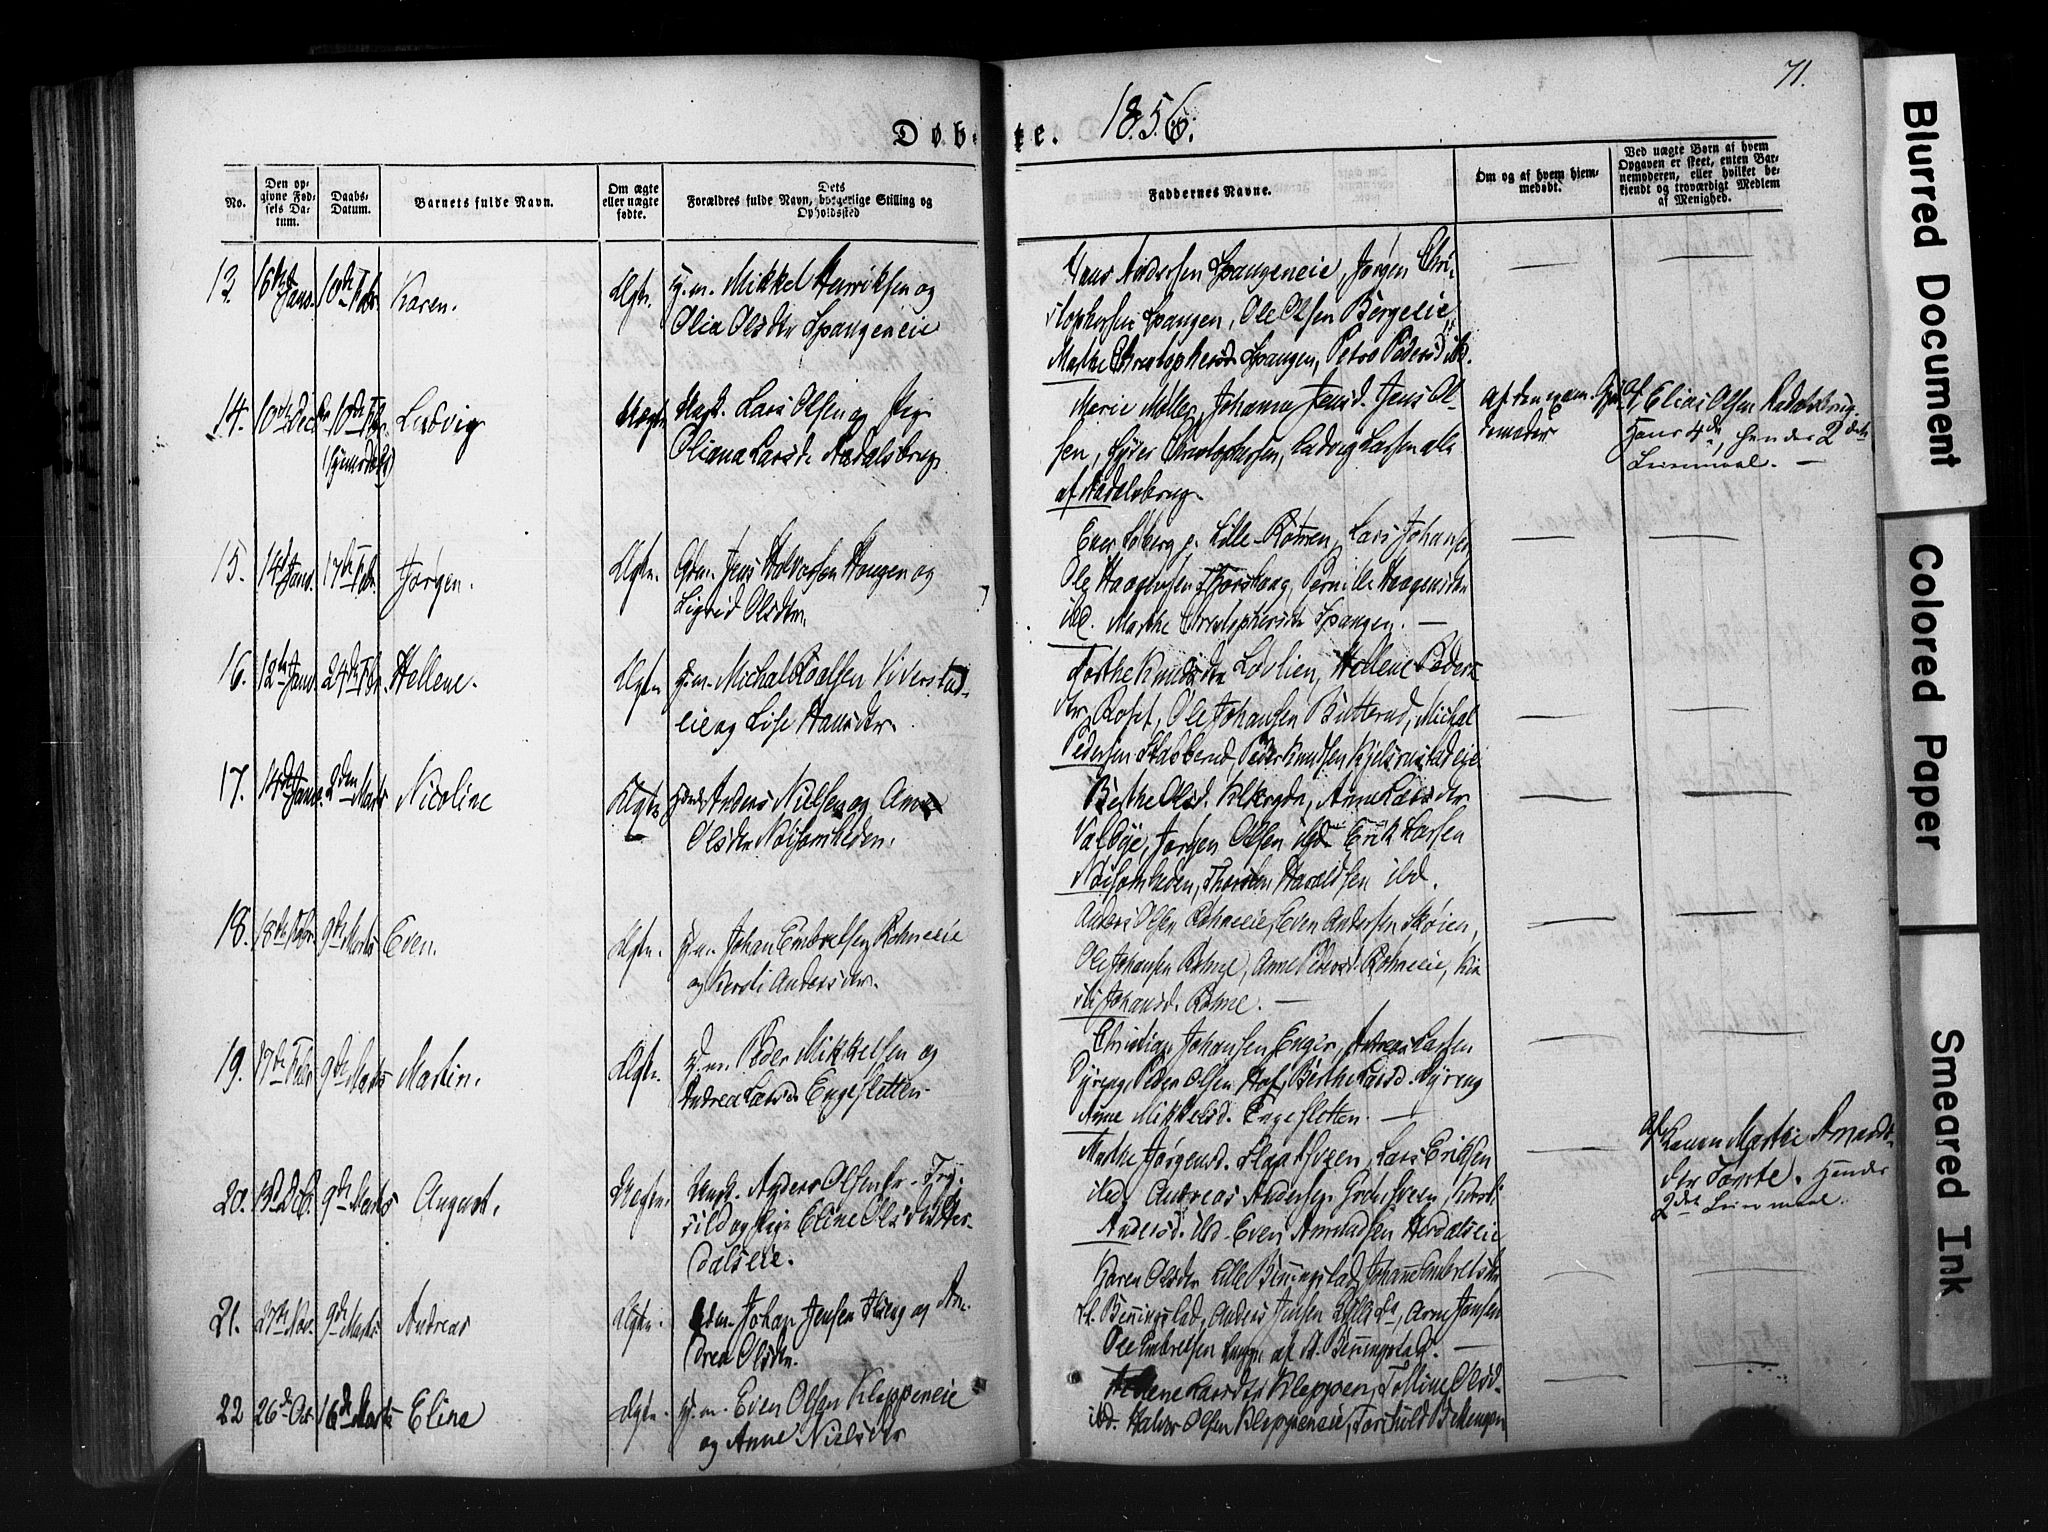 71.
Døb-te. 1856.
No.
Den op-
givne Fød-
sels Da-
tum.
Daabs-
Datum.
Barnets fulde Navn.
Om ægte
eller uægte
fødte.
Dets
Forældres fulde Navn, borgerlige Stilling og
Opholdssted
Faddernes Navne.
Om og af hvem hjem-
medøbt.
Ved uægte Børn af hvem
Opgaven er skeet, enten Bar-
nemoderen, eller hvilket be-
kjendt og troværdigt Medlem
af Menighed.
13. 16de Janr. 10de Febr. Karen. Ægte. Hm. Mikkel Henriksen og
Olia Olsdtr Spangeneie
Hans Andersen Spangeneie, Jørgen Chri-
stophersen Spangen, Ole Olsen Børgeeie,
Marthe Christophersd. Spangen, Petra Pedersd. ibd.
14. 10de Decbr. 10de Febr. Ludvig Uægte Ungk. Lars Olsen og Pige
(hjemmedøbt)
Oliana Larsdr Aadalsbrug.
Marie Møller, Johanna Jensd. Jens Ol-
sen, Syver Christophersen, Ludvig Larsen alle
af Aadalsbrug.
af den nævn.
demoder
Af Elias Olsen Aadalsbrug.
Hans 4de, hendes 2det
Leiermaal. —
15. 14de Janr. 17de Febr. Jørgen. Ægte. Gdm. Jens Halvorsen Haugen og
Sigrid Olsdtr.
Lille-Kørren, Lars Johansen
Ole Haagensen Thorshaug, Pernille Haagensdtr
ibd. Marthe Christophersdtr Spangen. —
16. 12te Janr. 24de Febr. Hellene. Ægte Hm. Michal Roalsen Viverstad-
eie og Lise Hansdtr.
Dorthe Knudsdtr Lovlien, Hellene Peders-
dtr Roset, Ole Johansen Butterud, Michal
Pedersen Stabberud, Peder Knudsen Kjelsrustadeie
17. 14de Janr. 2den Marts Nicoline Ægte Anders Nielsen og Anne
Olsdtr Nøisomheden.
Berthe Olsd. Anne Larsdtr
Valbye, Jørgen Olsen ibd. Erik Larsen
Nøisomheden, Thorsten Haraldsen ibd.
18. 18de Febr. 9de Marts Even. Ægte. Hm. Johan Embretsen Rohneeie
og Kersti Andersdtr.
Anders Olsen Rohneeie, Even Andersen Skøien,
Ole Johansen Rohne, Anne Pedersd. Rohneeie, Kir-
sti Johansd. Rohne. —
19. 17de Febr. 9de Marts Martin. Ægte. Hm. Peder Mikkelsen og
Andrea Larsd. Engesletten.
Christian Johansen Enger, Andreas Larsen
Dyreng, Peder Olsen Hof, Berthe Larsd. Dyreng
Anne Mikkelsd. Engesletten. —
20. 13de Decb. 9de Marts August. Uægte. Ungk. Anders Olsen Try-
sild og Pige Eline Olsdtr Her-
dalseie.
Marthe Jørgensd. Lars Eriksen
ibd. Andreas Andersen Kersti
Andersd. ibd. Even Amundsen Herdalseie
Af Karen Marthe Amunds-
der Tørste. Hendes
2det Leiermaal.
21. 27de Nov. 9de Marts Andreas Ægte. Gdm. Johan Jensen og An-
drea Olsdtr.
Karen Olsdtr Lille Benningstad, Johanne Embretsdtr
St. Benningstad, Anders Jensen Arne Jansen
Ole Embretsen af St. Benningstad. —
22 26de Oct. 16de Marts Eline Ægte. Hm. Even Olsen Kleppeneie
og Anne Nielsdtr
Hellene Larsdtr Kleppen, Olsd.
ibd. Halvor Olsen Kleppeneie,
Blurred Document
Colored Paper
Smeared Ink